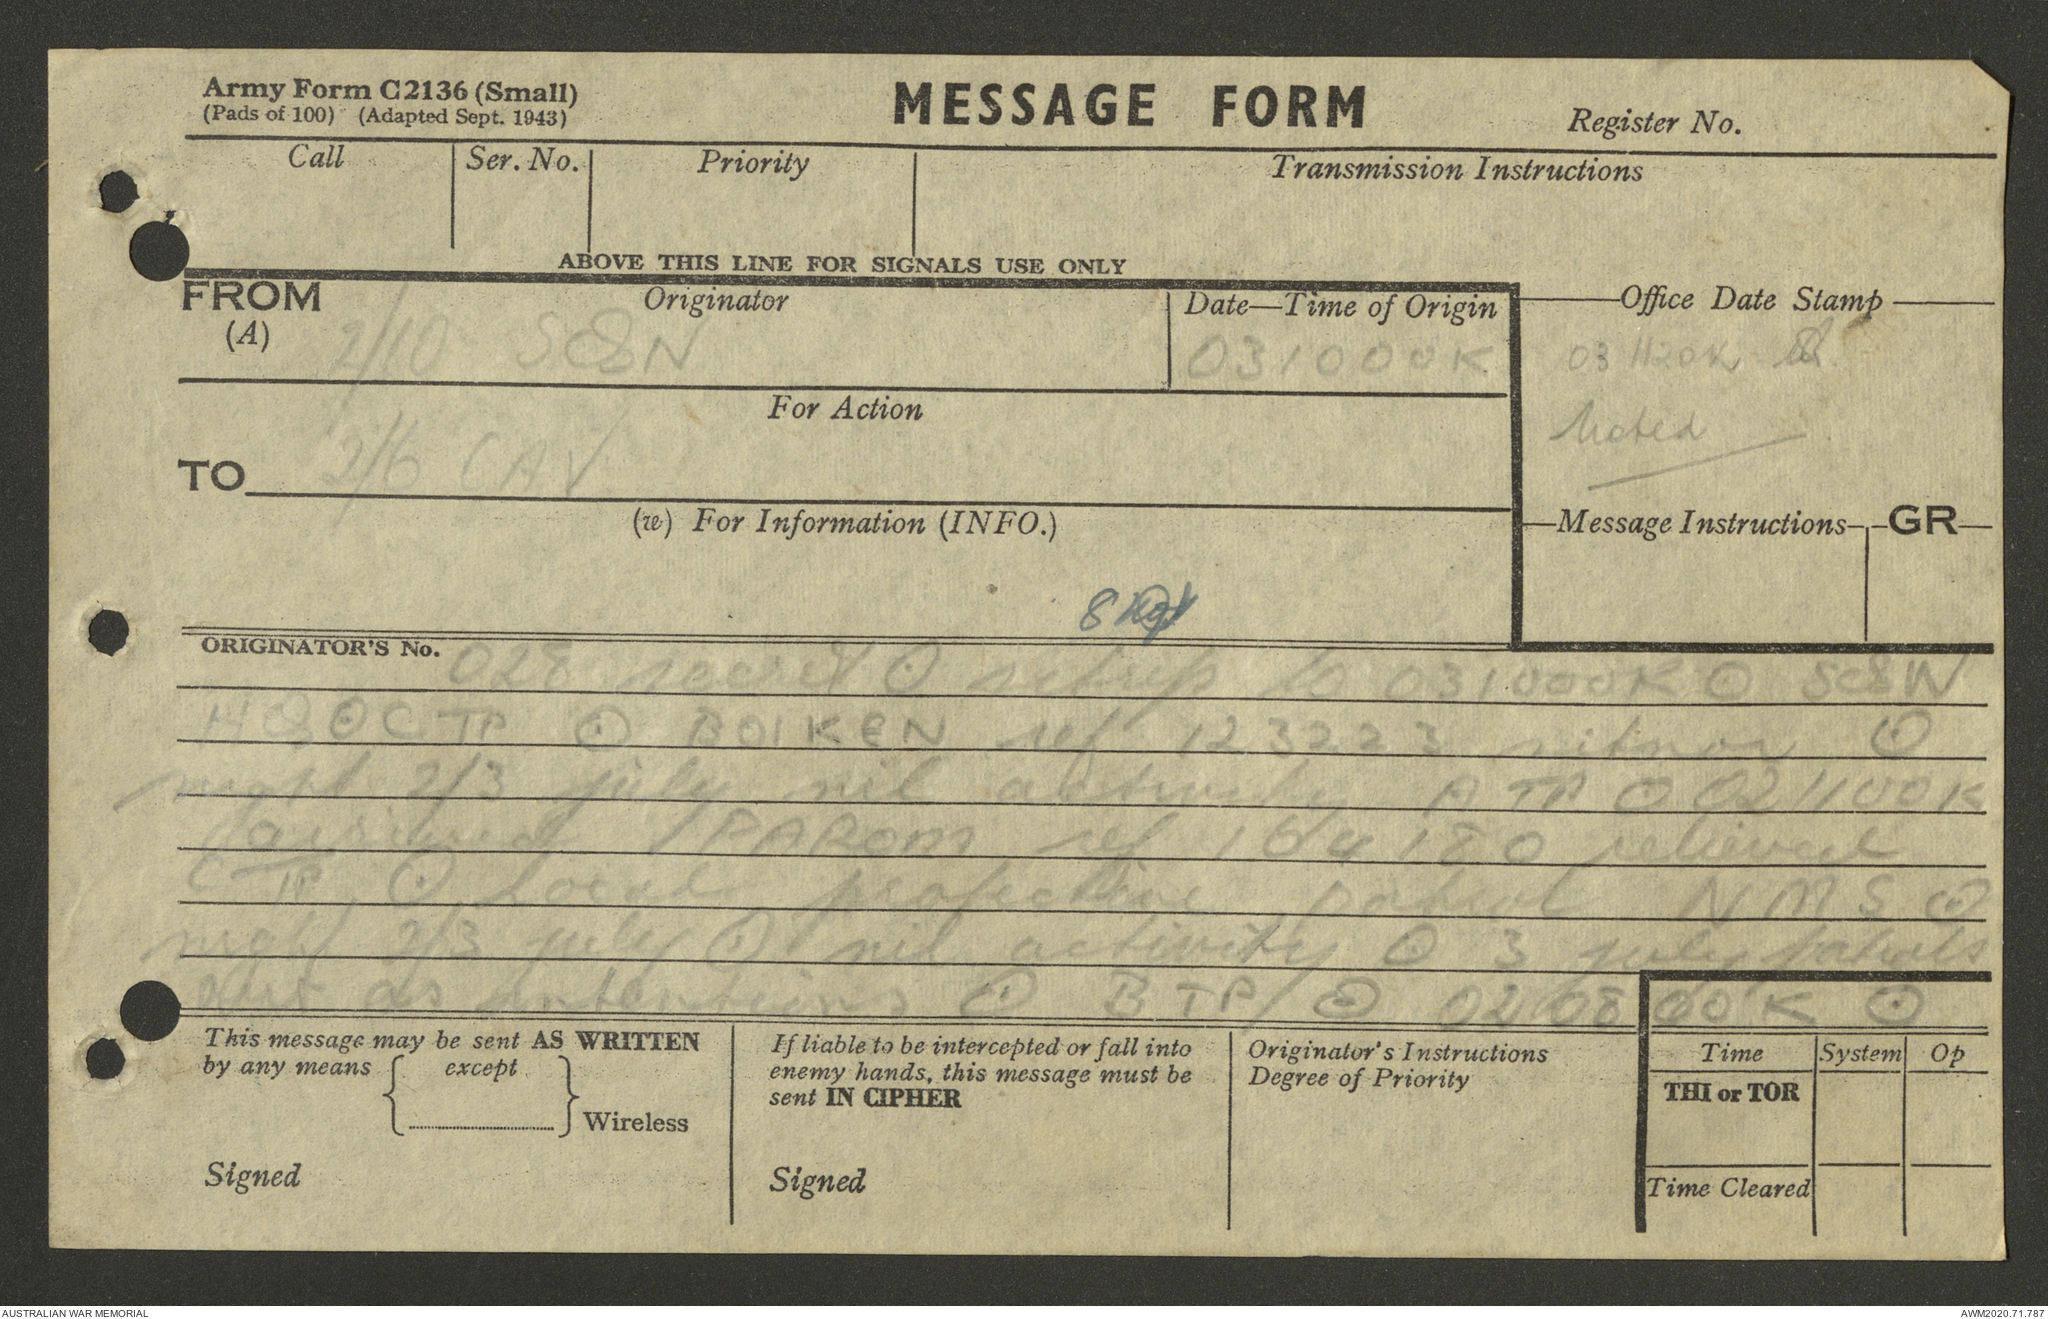 Army Form C2136 (Small)
(Pads of 100) (Adapted Sept. 1943)
MESSAGE FORM
Register No.
Call
Ser. No.
Priority
Transmission Instructions
ABOVE THIS LINE FOR SIGNALS USE ONLY
FROM
(A)
Originator
2/10 SQN
Date—Time of Origin
031000K
Office Date Stamp
03 1120K
Noted
For Action
TO
2/6 CAV
(w) For Information (INFO.)
Message Instructions
GR
8
ORIGINATOR'S No.
028 secret ⊙ sitrep to 031000K ⊙ SQN
HQ ⊙ C TP ⊙ BOIKEN ref 123223 sitnor ⊙
night 2/3 july nil activity A TP ⊙ 021100K
arrived PAROM ref 164180 relieved
C TP ⊙ Local protective patrol NMS ⊙
night 2/3 july ⊙ nil activity ⊙ 3 july patrols
as intentions ⊙ B TP ⊙ 020800K ⊙
This message may be sent AS WRITTEN
by any means { except } Wireless
Signed
If liable to be intercepted or fall into
enemy hands, this message must be
sent IN CIPHER
Signed
Originator's Instructions
Degree of Priority
Time
System
Op
THI or TOR
Time Cleared
AUSTRALIAN WAR MEMORIAL
AWM2020.71.787